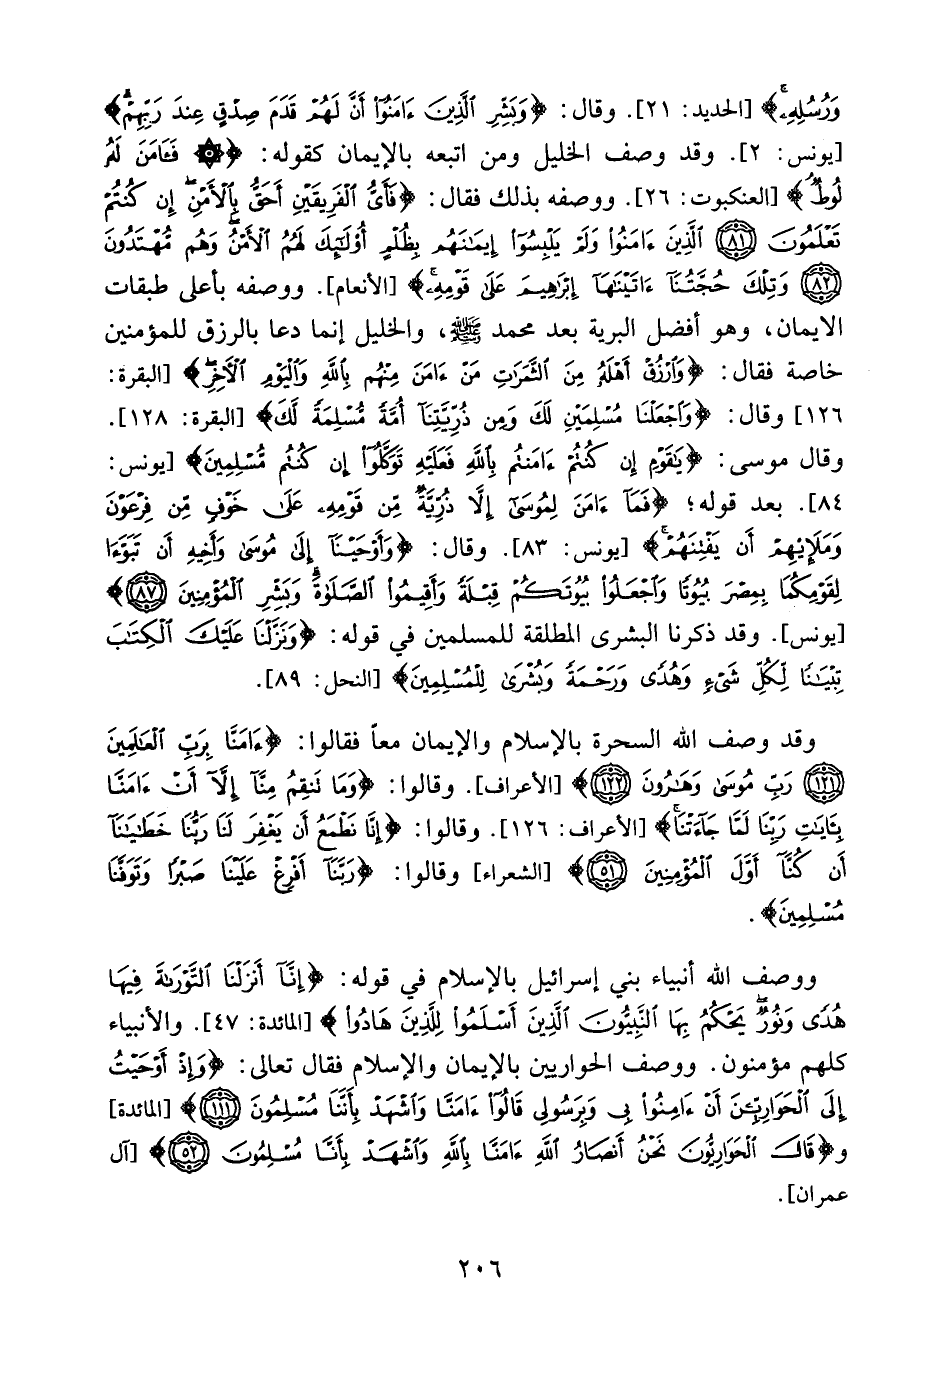 وَرُسُلِهِۦۚ﴾ [الحديد: ٢١]. وقال: ﴿وَبَشِّرِ ٱلَّذِينَ ءَامَنُوٓا۟ أَنَّ لَهُمْ قَدَمَ صِدْقٍ عِندَ رَبِّهِمْۗ﴾
[يونس: ٢]. وقد وصف الخليل ومن اتبعه بالإيمان كقوله: ﴿۞ فَـَٔامَنَ لَهُۥ
لُوطٌۘ﴾ [العنكبوت: ٢٦]. ووصفه بذلك فقال: ﴿فَأَىُّ ٱلْفَرِيقَيْنِ أَحَقُّ بِٱلْأَمْنِۖ إِن كُنتُمْ
تَعْلَمُونَ ﴿٨١﴾ ٱلَّذِينَ ءَامَنُوا۟ وَلَمْ يَلْبِسُوٓا۟ إِيمَـٰنَهُم بِظُلْمٍ أُو۟لَـٰٓئِكَ لَهُمُ ٱلْأَمْنُۖ وَهُم مُّهْتَدُونَ
﴿٨٢﴾ وَتِلْكَ حُجَّتُنَآ ءَاتَيْنَـٰهَآ إِبْرَٰهِيمَ عَلَىٰ قَوْمِهِۦۚ﴾ [الأنعام]. ووصفه بأعلى طبقات
الايمان، وهو أفضل البرية بعد محمد ﷺ، والخليل إنما دعا بالرزق للمؤمنين
خاصة فقال: ﴿وَٱرْزُقْ أَهْلَهُۥ مِنَ ٱلثَّمَرَٰتِ مَنْ ءَامَنَ مِنْهُم بِٱللَّهِ وَٱلْيَوْمِ ٱلْـَٔاخِرِۖ﴾ [البقرة:
١٢٦] وقال: ﴿وَٱجْعَلْنَا مُسْلِمَيْنِ لَكَ وَمِن ذُرِّيَّتِنَآ أُمَّةً مُّسْلِمَةً لَّكَ﴾ [البقرة: ١٢٨].
وقال موسى: ﴿يَـٰقَوْمِ إِن كُنتُمْ ءَامَنتُم بِٱللَّهِ فَعَلَيْهِ تَوَكَّلُوٓا۟ إِن كُنتُم مُّسْلِمِينَ﴾ [يونس:
٨٤]. بعد قوله؛ ﴿فَمَآ ءَامَنَ لِمُوسَىٰٓ إِلَّا ذُرِّيَّةٌ مِّن قَوْمِهِۦ عَلَىٰ خَوْفٍ مِّن فِرْعَوْنَ
وَمَلَإِي۟هِمْ أَن يَفْتِنَهُمْۚ﴾ [يونس: ٨٣]. وقال: ﴿وَأَوْحَيْنَآ إِلَىٰ مُوسَىٰ وَأَخِيهِ أَن تَبَوَّءَا
لِقَوْمِكُمَا بِمِصْرَ بُيُوتًا وَٱجْعَلُوا۟ بُيُوتَكُمْ قِبْلَةً وَأَقِيمُوا۟ ٱلصَّلَوٰةَۗ وَبَشِّرِ ٱلْمُؤْمِنِينَ ﴿٨٧﴾﴾
[يونس]. وقد ذكرنا البشرى المطلقة للمسلمين في قوله: ﴿وَنَزَّلْنَا عَلَيْكَ ٱلْكِتَـٰبَ
تِبْيَـٰنًا لِّكُلِّ شَىْءٍ وَهُدًى وَرَحْمَةً وَبُشْرَىٰ لِلْمُسْلِمِينَ﴾ [النحل: ٨٩].
وقد وصف الله السحرة بالإسلام والإيمان معاً فقالوا: ﴿ءَامَنَّا بِرَبِّ ٱلْعَـٰلَمِينَ
﴿١٢١﴾ رَبِّ مُوسَىٰ وَهَـٰرُونَ ﴿١٢٢﴾﴾ [الأعراف]. وقالوا: ﴿وَمَا تَنقِمُ مِنَّآ إِلَّآ أَنْ ءَامَنَّا
بِـَٔايَـٰتِ رَبِّنَا لَمَّا جَآءَتْنَاۚ﴾ [الأعراف: ١٢٦]. وقالوا: ﴿إِنَّا نَطْمَعُ أَن يَغْفِرَ لَنَا رَبُّنَا خَطَـٰيَـٰنَآ
أَن كُنَّآ أَوَّلَ ٱلْمُؤْمِنِينَ ﴿٥١﴾﴾ [الشعراء] وقالوا: ﴿رَبَّنَآ أَفْرِغْ عَلَيْنَا صَبْرًا وَتَوَفَّنَا
مُسْلِمِينَ﴾.
ووصف الله أنبياء بني إسرائيل بالإسلام في قوله: ﴿إِنَّآ أَنزَلْنَا ٱلتَّوْرَىٰةَ فِيهَا
هُدًى وَنُورٌۚ يَحْكُمُ بِهَا ٱلنَّبِيُّونَ ٱلَّذِينَ أَسْلَمُوا۟ لِلَّذِينَ هَادُوا۟﴾ [المائدة: ٤٧]. والأنبياء
كلهم مؤمنون. ووصف الحواريين بالإيمان والإسلام فقال تعالى: ﴿وَإِذْ أَوْحَيْتُ
إِلَى ٱلْحَوَارِيِّـۧنَ أَنْ ءَامِنُوا۟ بِى وَبِرَسُولِى قَالُوٓا۟ ءَامَنَّا وَٱشْهَدْ بِأَنَّنَا مُسْلِمُونَ ﴿١١١﴾﴾ [المائدة]
و﴿قَالَ ٱلْحَوَارِيُّونَ نَحْنُ أَنصَارُ ٱللَّهِ ءَامَنَّا بِٱللَّهِ وَٱشْهَدْ بِأَنَّا مُسْلِمُونَ ﴿٥٢﴾﴾ [آل
عمران].
٢٠٦